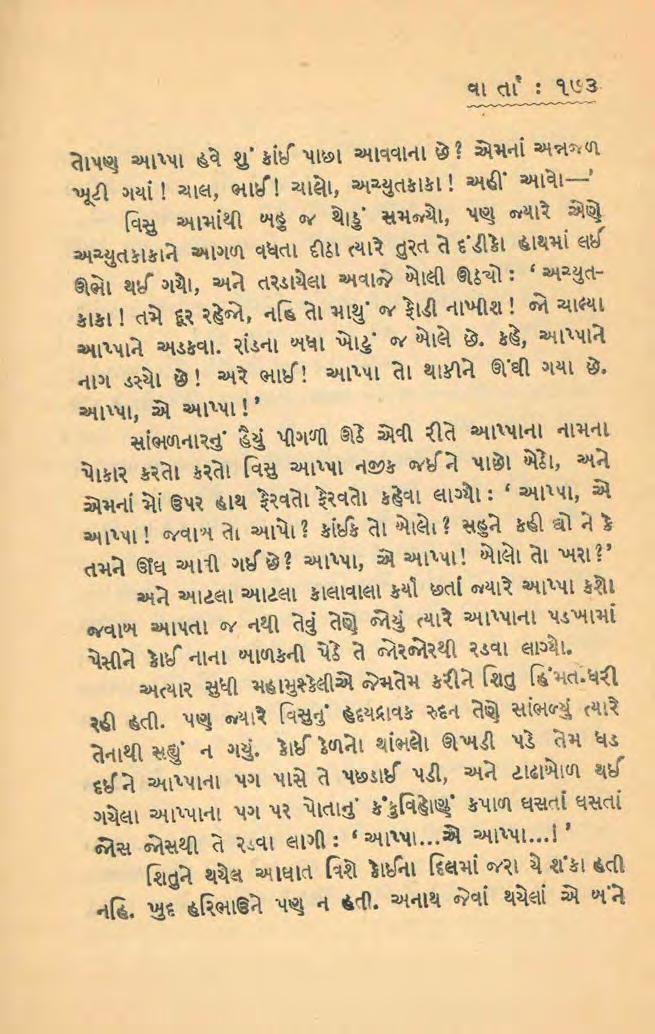 વાર્તા : ૧૭૩
તોપણ આપ્પા હવે શું કાંઈ પાછા આવવાના છે? એમનાં અન્નજળ
ખૂટી ગયાં! ચાલ, ભાઈ! ચાલો, અચ્યુતકાકા! અહીં આવો—’
વિસુ આમાંથી બહુ જ થોડું સમજ્યો, પણ જ્યારે એણે
અચ્યુતકાકાને આગળ વધતા દીઠા ત્યારે તુરત તે દંડીકો હાથમાં લઈ
ઊભો થઈ ગયો, અને તરડાયેલા અવાજે બોલી ઊઠ્યો : ‘ અચ્યુત-
કાકા! તમે દૂર રહેજો, નહિ તો માથું જ ફોડી નાખીશ! જો ચાલ્યા
આપ્પાને અડકવા. રાંડના બધા ખોટું જ બોલે છે. કહે, આપ્પાને
નાગ ડસ્યો છે! અરે ભાઈ! આપ્પા તો થાકીને ઊંઘી ગયા છે.
આપ્પા, એ આપ્પા!’
સાંભળનારનું હૈયું પીગળી ઊઠે એવી રીતે આપ્પાના નામના
પોકાર કરતો કરતો વિસુ આપ્પા નજીક જઈને પાછો બેઠો, અને
એમનાં મોં ઉપર હાથ ફેરવતો ફેરવતો કહેવા લાગ્યો : ‘ આપ્પા, એ
આપ્પા! જવાબ તો આપો? કાંઈક તો બોલો? સહુને કહી દ્યો ને કે
તમને ઊંઘ આવી ગઈ છે? આપ્પા, એ આપ્પા! બોલો તો ખરા?’
અને આટલા આટલા કાલાવાલા કર્યા છતાં જ્યારે આપ્પા કશો
જવાબ આપતા જ નથી તેવું તેણે જોયું ત્યારે આપ્પાના પડખામાં
પેસીને કોઈ નાના બાળકની પેઠે તે જોરજોરથી રડવા લાગ્યો.
અત્યાર સુધી મહામુશ્કેલીએ જેમતેમ કરીને શિતુ હિંમત ધરી
રહી હતી. પણ જ્યારે વિસુનું હૃદયદ્રાવક રુદન તેણે સાંભળ્યું ત્યારે
તેનાથી સહ્યું ન ગયું. કોઈ કેળનો થાંભલો ઊખડી પડે તેમ ધડ
દઈને આપ્પાના પગ પાસે તે પછડાઈ પડી, અને ટાઢાબોળ થઈ
ગયેલા આપ્પાના પગ પર પોતાનું કંકુવિહોણું કપાળ ઘસતાં ઘસતાં
જોસ જોસથી તે રડવા લાગી : ‘ આપ્પા...એ આપ્પા...!’
શિતુને થયેલ આઘાત વિશે કોઈના દિલમાં જરા યે શંકા હતી
નહિ. ખુદ હરિભાઉને પણ ન હતી. અનાથ જેવાં થયેલાં એ બંને